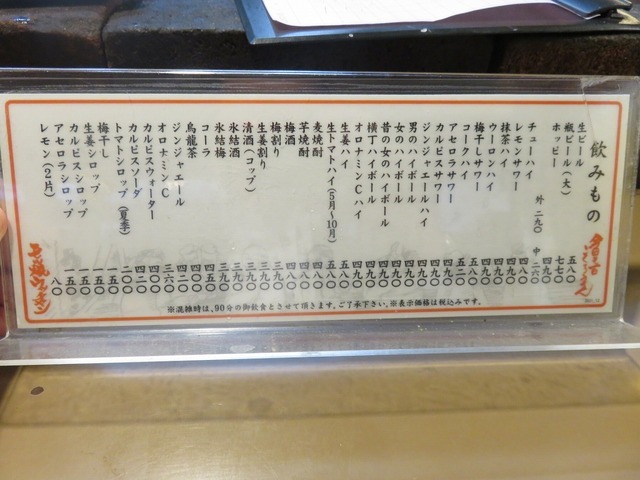 飲みもの
生ビール 五八〇
瓶ビール(大) 七七〇
ホッピー 四九〇
外 二九〇 中 二六〇
チューハイ
レモンサワー 四八〇
抹茶ハイ 四九〇
ウーロンハイ 四九〇
梅干しサワー 四九〇
コークハイ
アセロラサワー
カルピスサワー 四九〇
ジンジャエールハイ 四九〇
男のハイボール 四九〇
女のハイボール 四九〇
昔の女のハイボール 四九〇
横丁ハイボール 四九〇
オロナミンCハイ
生姜ハイ 五八〇
生トマトハイ(5月〜10月) 五八〇
麦焼酎 四八〇
芋焼酎 四八〇
梅酒 四八〇
梅割り 三九〇
生姜割り 三九〇
清酒(コップ) 三九〇
氷結酒 三九〇
氷結梅 三九〇
コーラ 四五〇
烏龍茶 四〇〇
ジンジャエール
オロナミンC 三六〇
カルピスウォーター 四二〇
カルピスソーダ 四二〇
トマトシロップ(夏季) 二〇〇
梅干し 一五〇
生姜シロップ 一五〇
カルピスシロップ 一五〇
アセロラシロップ 一五〇
レモン(2片) 一八〇
※混雑時は、90分の御飲食とさせて頂きます。ご了承下さい。※表示価格は税込みです。